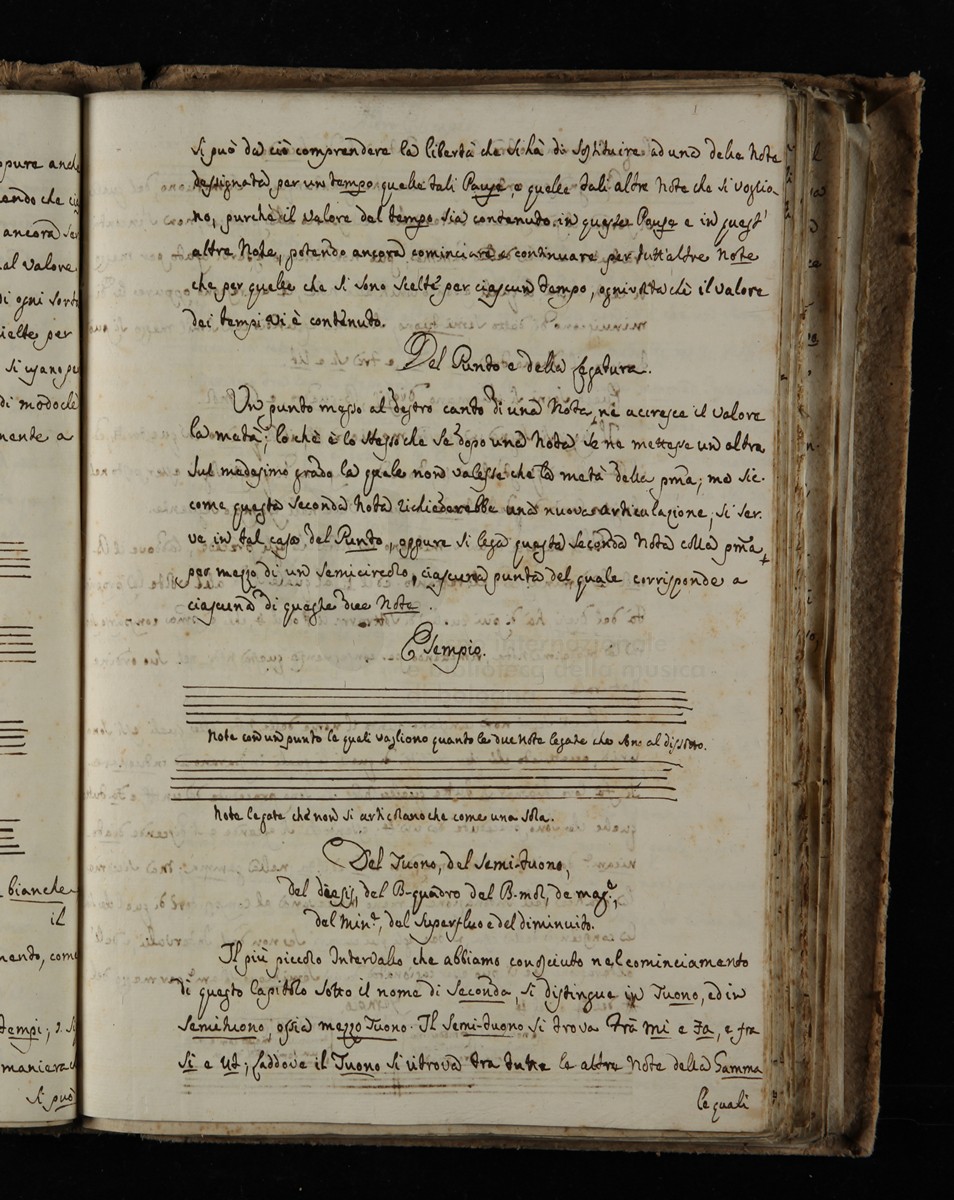 si può da ciò comprendere la libertà che si hà di sostituire ad una delle Note
dessignata per un tempo quelle tali Pause, e quelle tali altre Note che si voglio
no, purchè il valore del tempo sia contenuto in queste Pause e in quest'
altre Note, potendo ancora cominciare e continuare per tutt'altre Note
che per quelle che si sono scelte per ciascun tempo, ogni volta che il valore
dei tempi vi è contenuto.
Del Punto e della Legatura.
Un punto messo al destro canto di una Nota ne accresce il valore
la metà; lo chè è lo stesso che se dopo una Nota se ne mettesse un altra
sul medesimo grado la quale non valesse che la metà della pma; ma sic-
come questa seconda Nota richiederebbe una nuova articulazione, si ser-
ve in tal caso del Punto, oppure si lega questa seconda Nota colla pma,
per mezzo di un semicircolo, ciascuna punta del quale corrisponde a
ciascuna di queste due Note.
Esempio.
Note con un punto le quali vagliono quanto le due Note legate che sono al dissotto.
Note legate che non si articolano che come una sola.
Del Tuono, del Semi-tuono,
del diesis, del B-quadro del B-mol, de magr,
del Minr, del Superfluo e del diminuito.
Il più piccolo Intervallo che abbiamo conosciuto nel cominciamento
di questo Capitolo sotto il nome di Seconda, si distingue in Tuono, ed in
Semituono, ossia mezzo Tuono. Il Semi-tuono si trova frà Mi e Fa, e fra
Si e Ut; laddove il Tuono si ritrova tra tutte le altre Note della Gamma
le quali
bianche
il
tempi; 2. Si
maniera
Si può